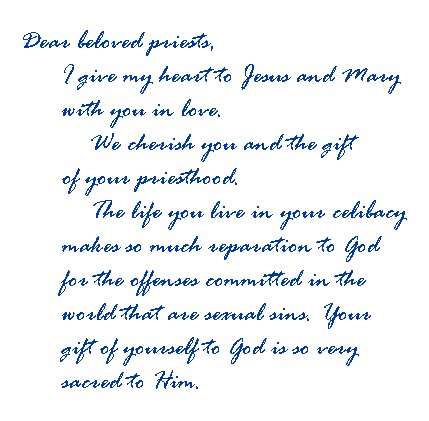 Dear beloved priests,
I give my heart to Jesus and Mary
with you in love.
We cherish you and the gift
of your priesthood.
The life you live in your celibacy
makes so much reparation to God
for the offenses committed in the
world that are sexual sins. Your
gift of yourself to God is so very
sacred to Him.